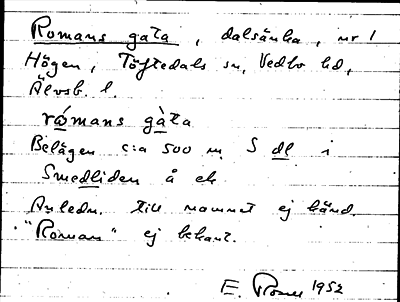 Romans gata, dalsänka, nr 1
Högen, Töftedals sn, Vedbo hd,
Älvsb. l.
rómans gàta
Belägen c:a 500 m S dl i
Smedliden å ek
Anledn. till namnet ej känd.
"Roman" ej bekant.
E. 1952